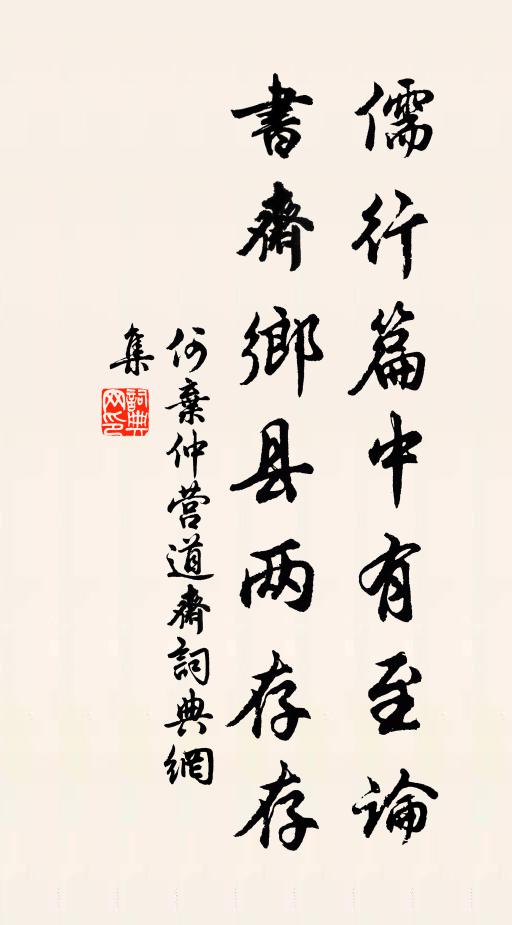 儒行篇中有至论
書齋鄉县两存存
何棄仲营道齋詞典網
集
詞典
网印